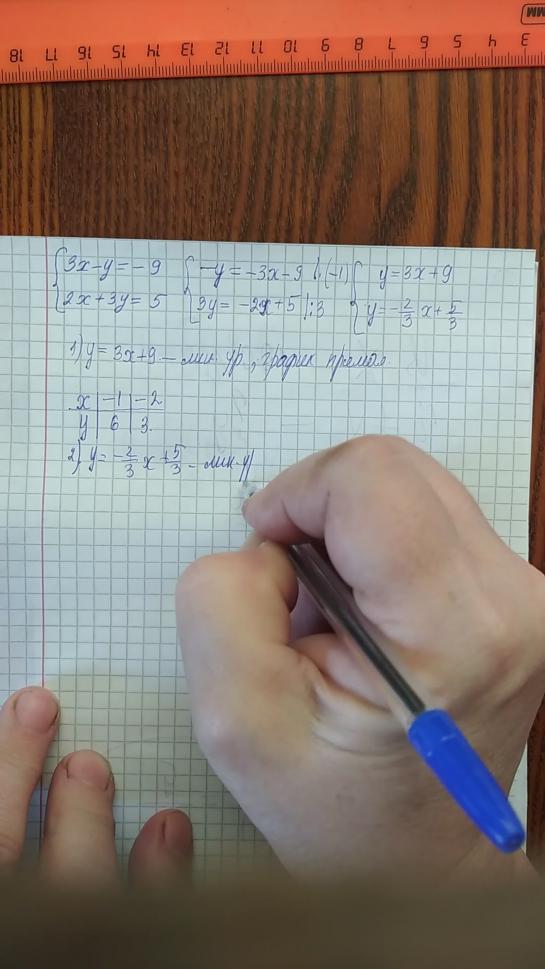 MM
18 17 16 15 14 13 12 11 10 9 8 7 6 5 4 3
3x-y=-9 -y=-3x-9 |·(-1) y=3x+9
2x+3y=5 3y=-2x+5 |:3 y=-2/3 x+5/3
1) y=3x+9 - лин ур, график прямая
x | -1 | -2
y | 6 | 3
2) y=-2/3 x+5/3 - лин у